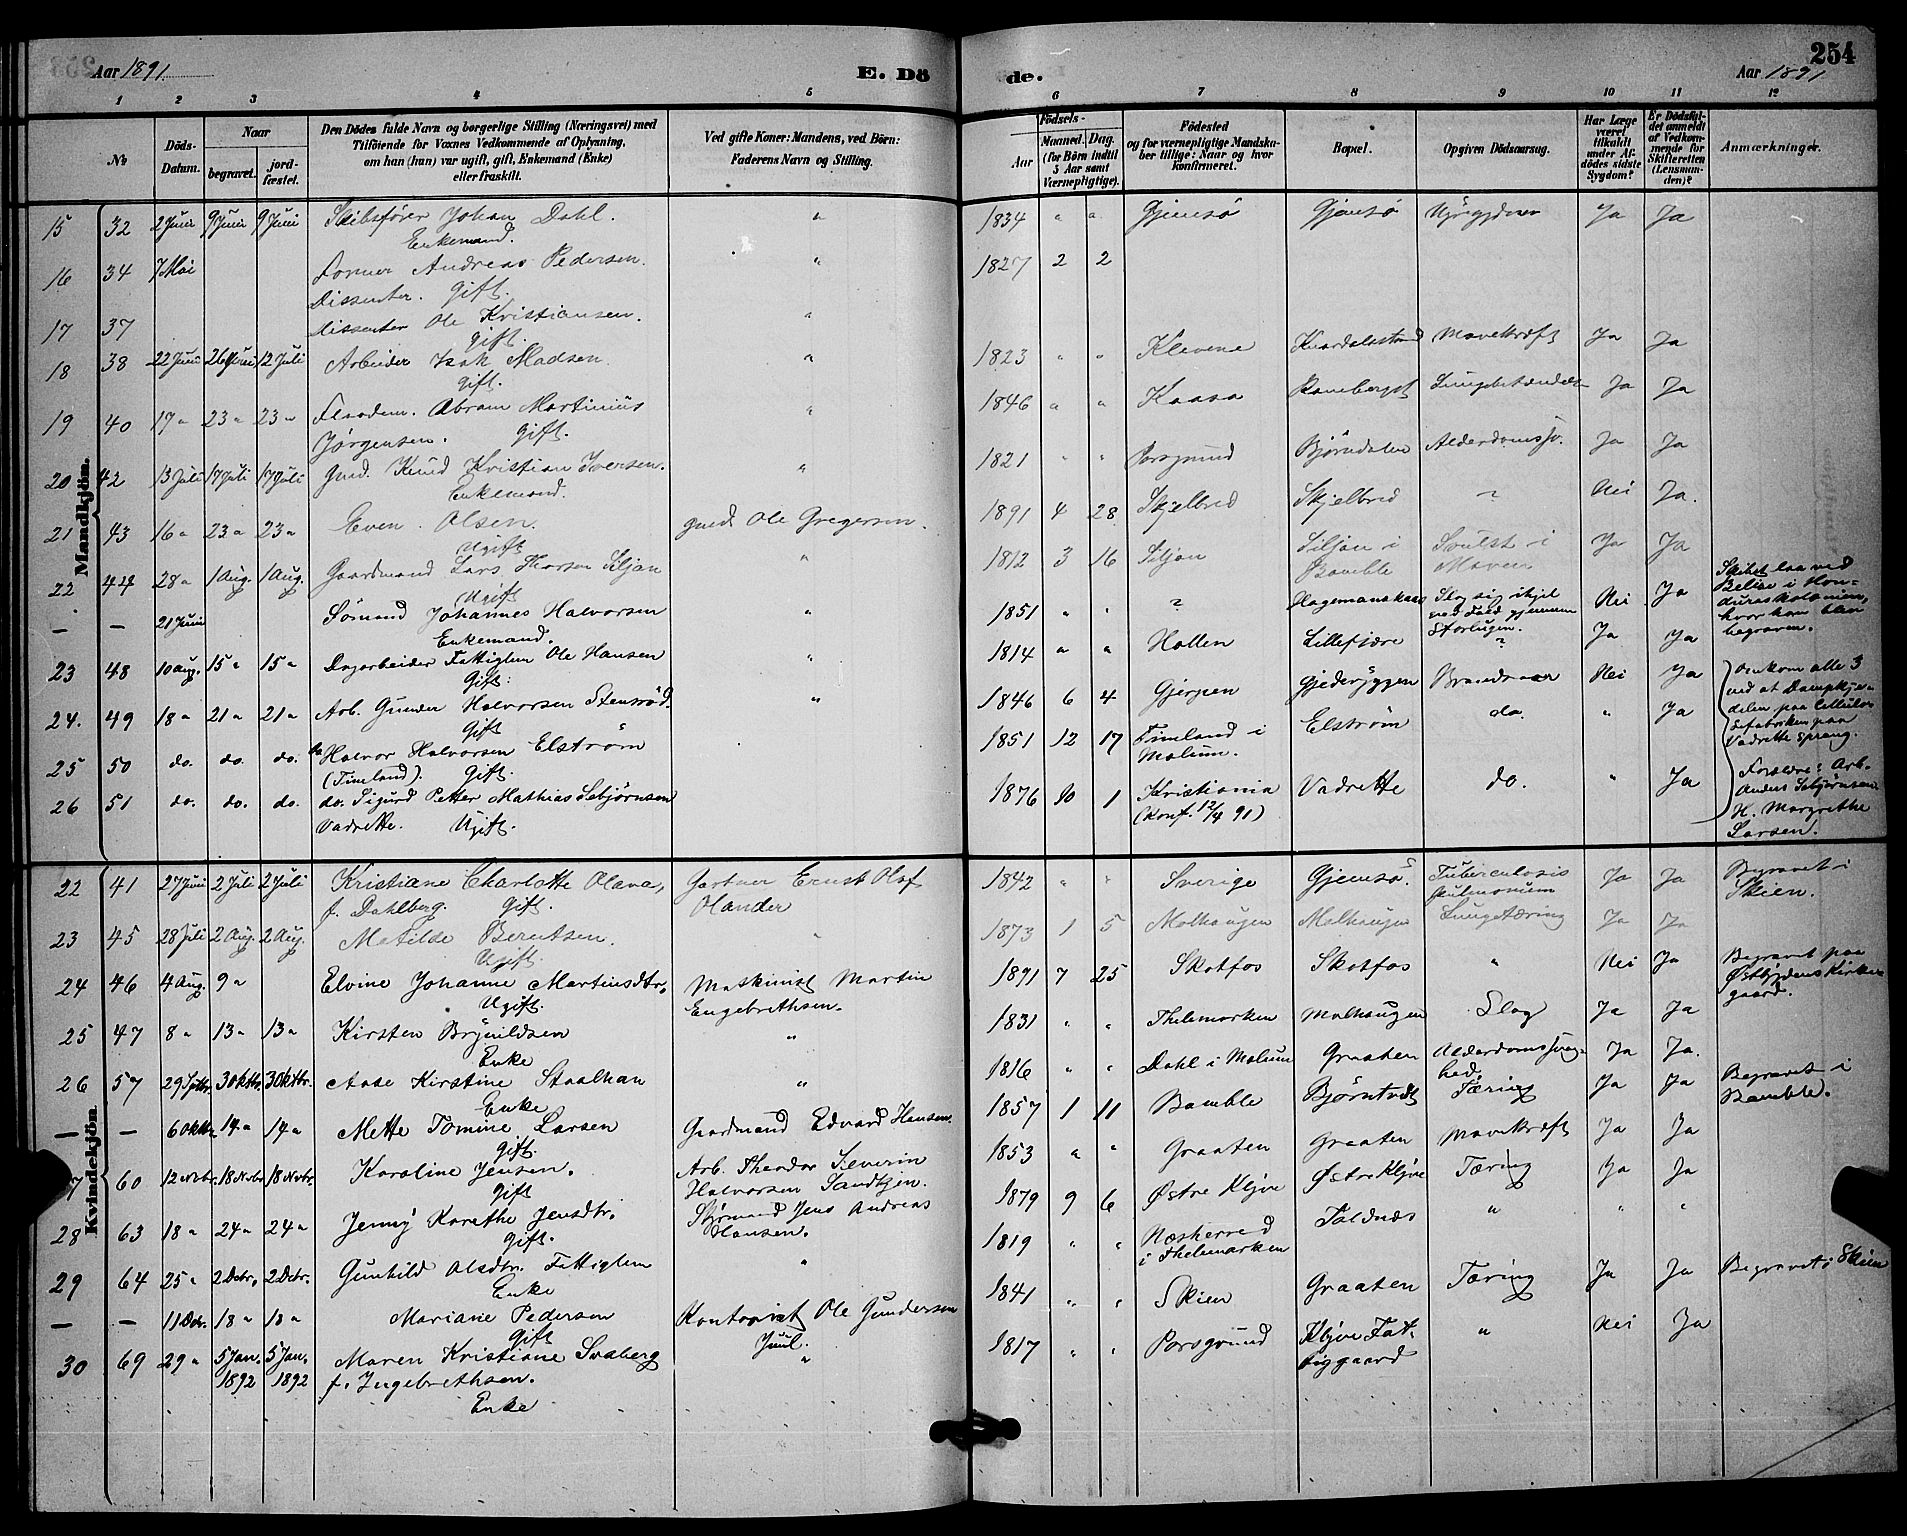 254
Aar 1891. E. Dö de. Aar 1891
1 2 3 4 5 6 7 8 9 10 11 12
No
Döds-Datum.
Naar
begravet.
jordfæstet.
Den Dödes fulde Navn og borgerlige Stilling (Næringsvei) med
Tilföiende for Voxnes Vedkommende af Oplysning,
om han (hun) var ugift, gift, Enkemand (Enke)
eller fraskilt.
Ved gifte Koner: Mandens, ved Börn:
Faderens Navn og Stilling.
Födsels-
Aar
Maaned. Dag.
(for Börn indtil
5 Aar samt
Værnepligtige).
Födested
og for værnepligtige Mandskaber tillige: Naar og hvor
konfirmeret.
Bopæl.
Opgiven Dödsaarsag.
Har Læge
været
tilkaldt
under Afdödes sidste
Sygdom?
Er Dödsfaldet anmeldt
af Vedkommende for
Skifteretten
(Lensmanden)?
Anmærkninger.
Mandkjön.
15 32 2 Juni 9 Juni 9 Juni Skibsfører Johan Dahl. " 1834 " " Gjemsø Gjemsø Ja Ja
Enkemand.
16 34 7 Mai Former Andreas Pedersen. " 1827 2 2
Dissenter. Gift.
17 37 Dissenter Ole Kristiansen. "
Gift.
18 38 22 Juni 26 Juni 12 Juli Arbeider Isak Madsen " 1823 " " Klevene Mavekræft Ja Ja
Gift.
19 40 17 " 23 " 23 " Abram Martinius " 1846 " " Kaasa Ja Ja
Jørgensen. Gift.
20 42 13 Juli 17 Juli 17 Juli Gmd. Knud Kristian Iversen. " 1821 " " Porsgrund Bjørndalen Alderdomssv. Ja Ja
Enkemand.
21 43 16 " 23 " 23 " Even Olsen. gmd. Ole Gregersen. 1891 4 28 Skjelbred Skjelbred ? Nei Ja.
Ugift
22 44 28 " 1 Aug. 1 Aug. Gaardmand Lars Thorsen Siljan " 1812 3 16 Siljan Siljan i Bamble Svulst i Maven Ja Ja
Ugift
— — 21 Juni Sømand Johannes Halvorsen " 1851 " " ? Slog sig ihjel ved Fald gjennem Storlugen. Nei Ja Skibet laa ved Belize i Honduraskolonien, hvor han blev begraven.
Enkemand.
23 48 10 Aug. 15 " 15 " Dagarbeider Fattiglem Ole Hansen " 1814 " " Hollen Lillefjære ? Ja Ja
Gift.
24. 49 18 " 21 " 21 " Arb. Gunder Halvorsen Stensrød. " 1846 6 4 Gjerpen Gjederyggen Brandsaar Nei Ja Omkom alle 3 ved at Dampkjedelen paa Cellulosefabriken paa Vadrette sprang.
Gift
25 50 do. do. do. do Halvor Halvorsen Elstrøm 1851 12 17 Fineland i Melum. Elstrøm do. " Ja
(Fineland). Gift.
26 51 do. do. do. do. Sigurd Petter Mathias Sebjørnsen 1876 10 1 Kristiania (Konf. 12/4 91) Vadrette do. " Ja Forældre: Arb. Anders Sebjørnsen H. Margrethe Larsen.
Vadrette. Ugift.
Kvindekjön.
22 41 27 Juni 2 Juli 2 Juli Kristiane Charlotte Olava, Gartner Ernst Olof Olander 1842 " " Sverige Gjemsø. Tuberculosis pulmonum Ja Ja Begravet i Skien.
f. Dahlberg. Gift.
23 45 28 Juli 2 Aug. 2 Aug. Matilde Berntsen. " 1873 1 5 Melhaugen Melhaugen Lungetæring Ja Ja
Ugift.
24 46 4 Aug. 9 " Elvine Johanne Martinsdtr. Maskinist Martin Engebrethsen. 1891 7 25 Skotfos Skotfos " Nei Ja Begravet paa Østbygdens Kirkegaard.
Ugift.
25 47 8 " 13 " 13 " Kirsten Brynildsen " 1831 " " Thelemarken Melhaugen Slag Ja Ja
Enke
26 57 29 Sptbr. 3 Oktbr. 3 Oktbr. Aase Kirstine Staalhan " 1816 " " Dahl i Melum Graaten Alderdomssvaghed. Ja Ja.
Enke
— — 6 Oktbr. 14 " 14 " Mette Tomine Larsen Gaardmand Edvard Hansen. 1857 1 11 Bamble Bjørntvedt Tæring Ja Ja Begravet i Bamble.
Gift.
7 60 12 Nvbr. 18 Nvbr. 18 Nvbr. Karoline Jensen. Arb. Theodor Severin Halvorsen 1853 " " Graaten Graaten Mavekræft Ja Ja
Gift
28 63 18 " 24 " 24 " Jenny Karethe Jensdtr. Styrmand Jens Andreas Hansen. 1879 9 6 Østre Klyve Østre Klyve Tæring Ja Ja
Gift.
29 64 25 " 2 Dcbr. 2 Dcbr. Gunhild Olsdtr. Fattiglem " 1819 " " Næsherred i Thelemarken Foldnæs " " "
Enke
— — 11 Dcbr. 18 " 18 " Mariane Pedersen Kontorist Ole Gundersen Juul. 1841 " " Skien Graaten Tæring Ja Ja Begravet i Skien
Gift
30 69 29 " 5 Jan. 1892 5 Jan. 1892 Maren Kristiane Svaberg " 1817 " " Porsgrund Klyve Fattiggaard " Nei Ja
f. Ingebrethsen.
Enke